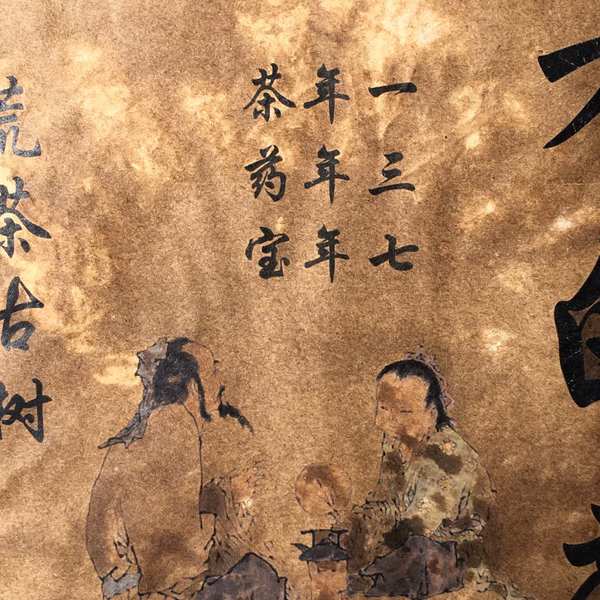 一年茶
三年药
七年宝
荒茶古树